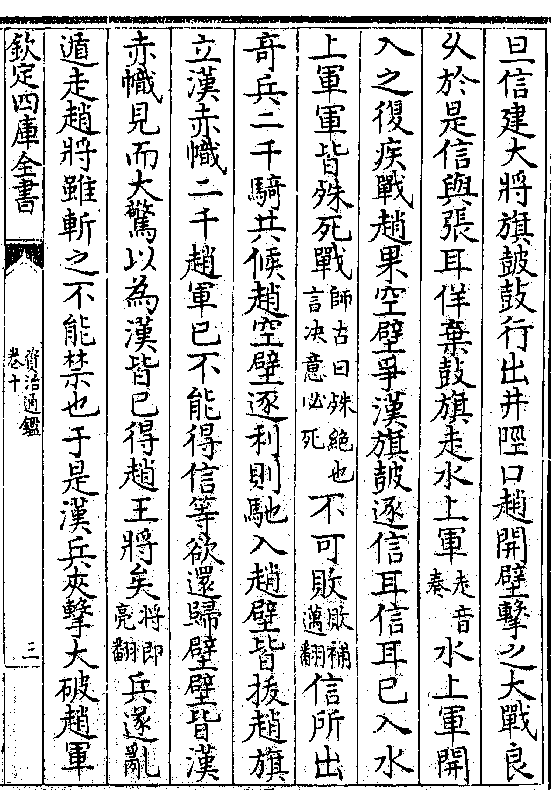 旦信建大將旗鼓鼓行出井陘口趙開壁擊之大戰良
乆於是信與張耳佯棄鼓旗走水上軍走音奏水上軍開
入之復疾戰趙果空壁爭漢旗鼓逐信耳信耳已入水
上軍軍皆殊死戰師古曰殊絕也言決意必死不可敗敗補邁翻信所出
奇兵二千騎共候趙空壁逐利則馳入趙壁皆拔趙旗
立漢赤幟二千趙軍已不能得信等欲還歸壁壁皆漢
赤幟見而大驚以為漢皆已得趙王將矣將即亮翻兵遂亂
遁走趙將雖斬之不能禁也于是漢兵夾擊大破趙軍
欽定四庫全書
資治通鑑
卷十
三